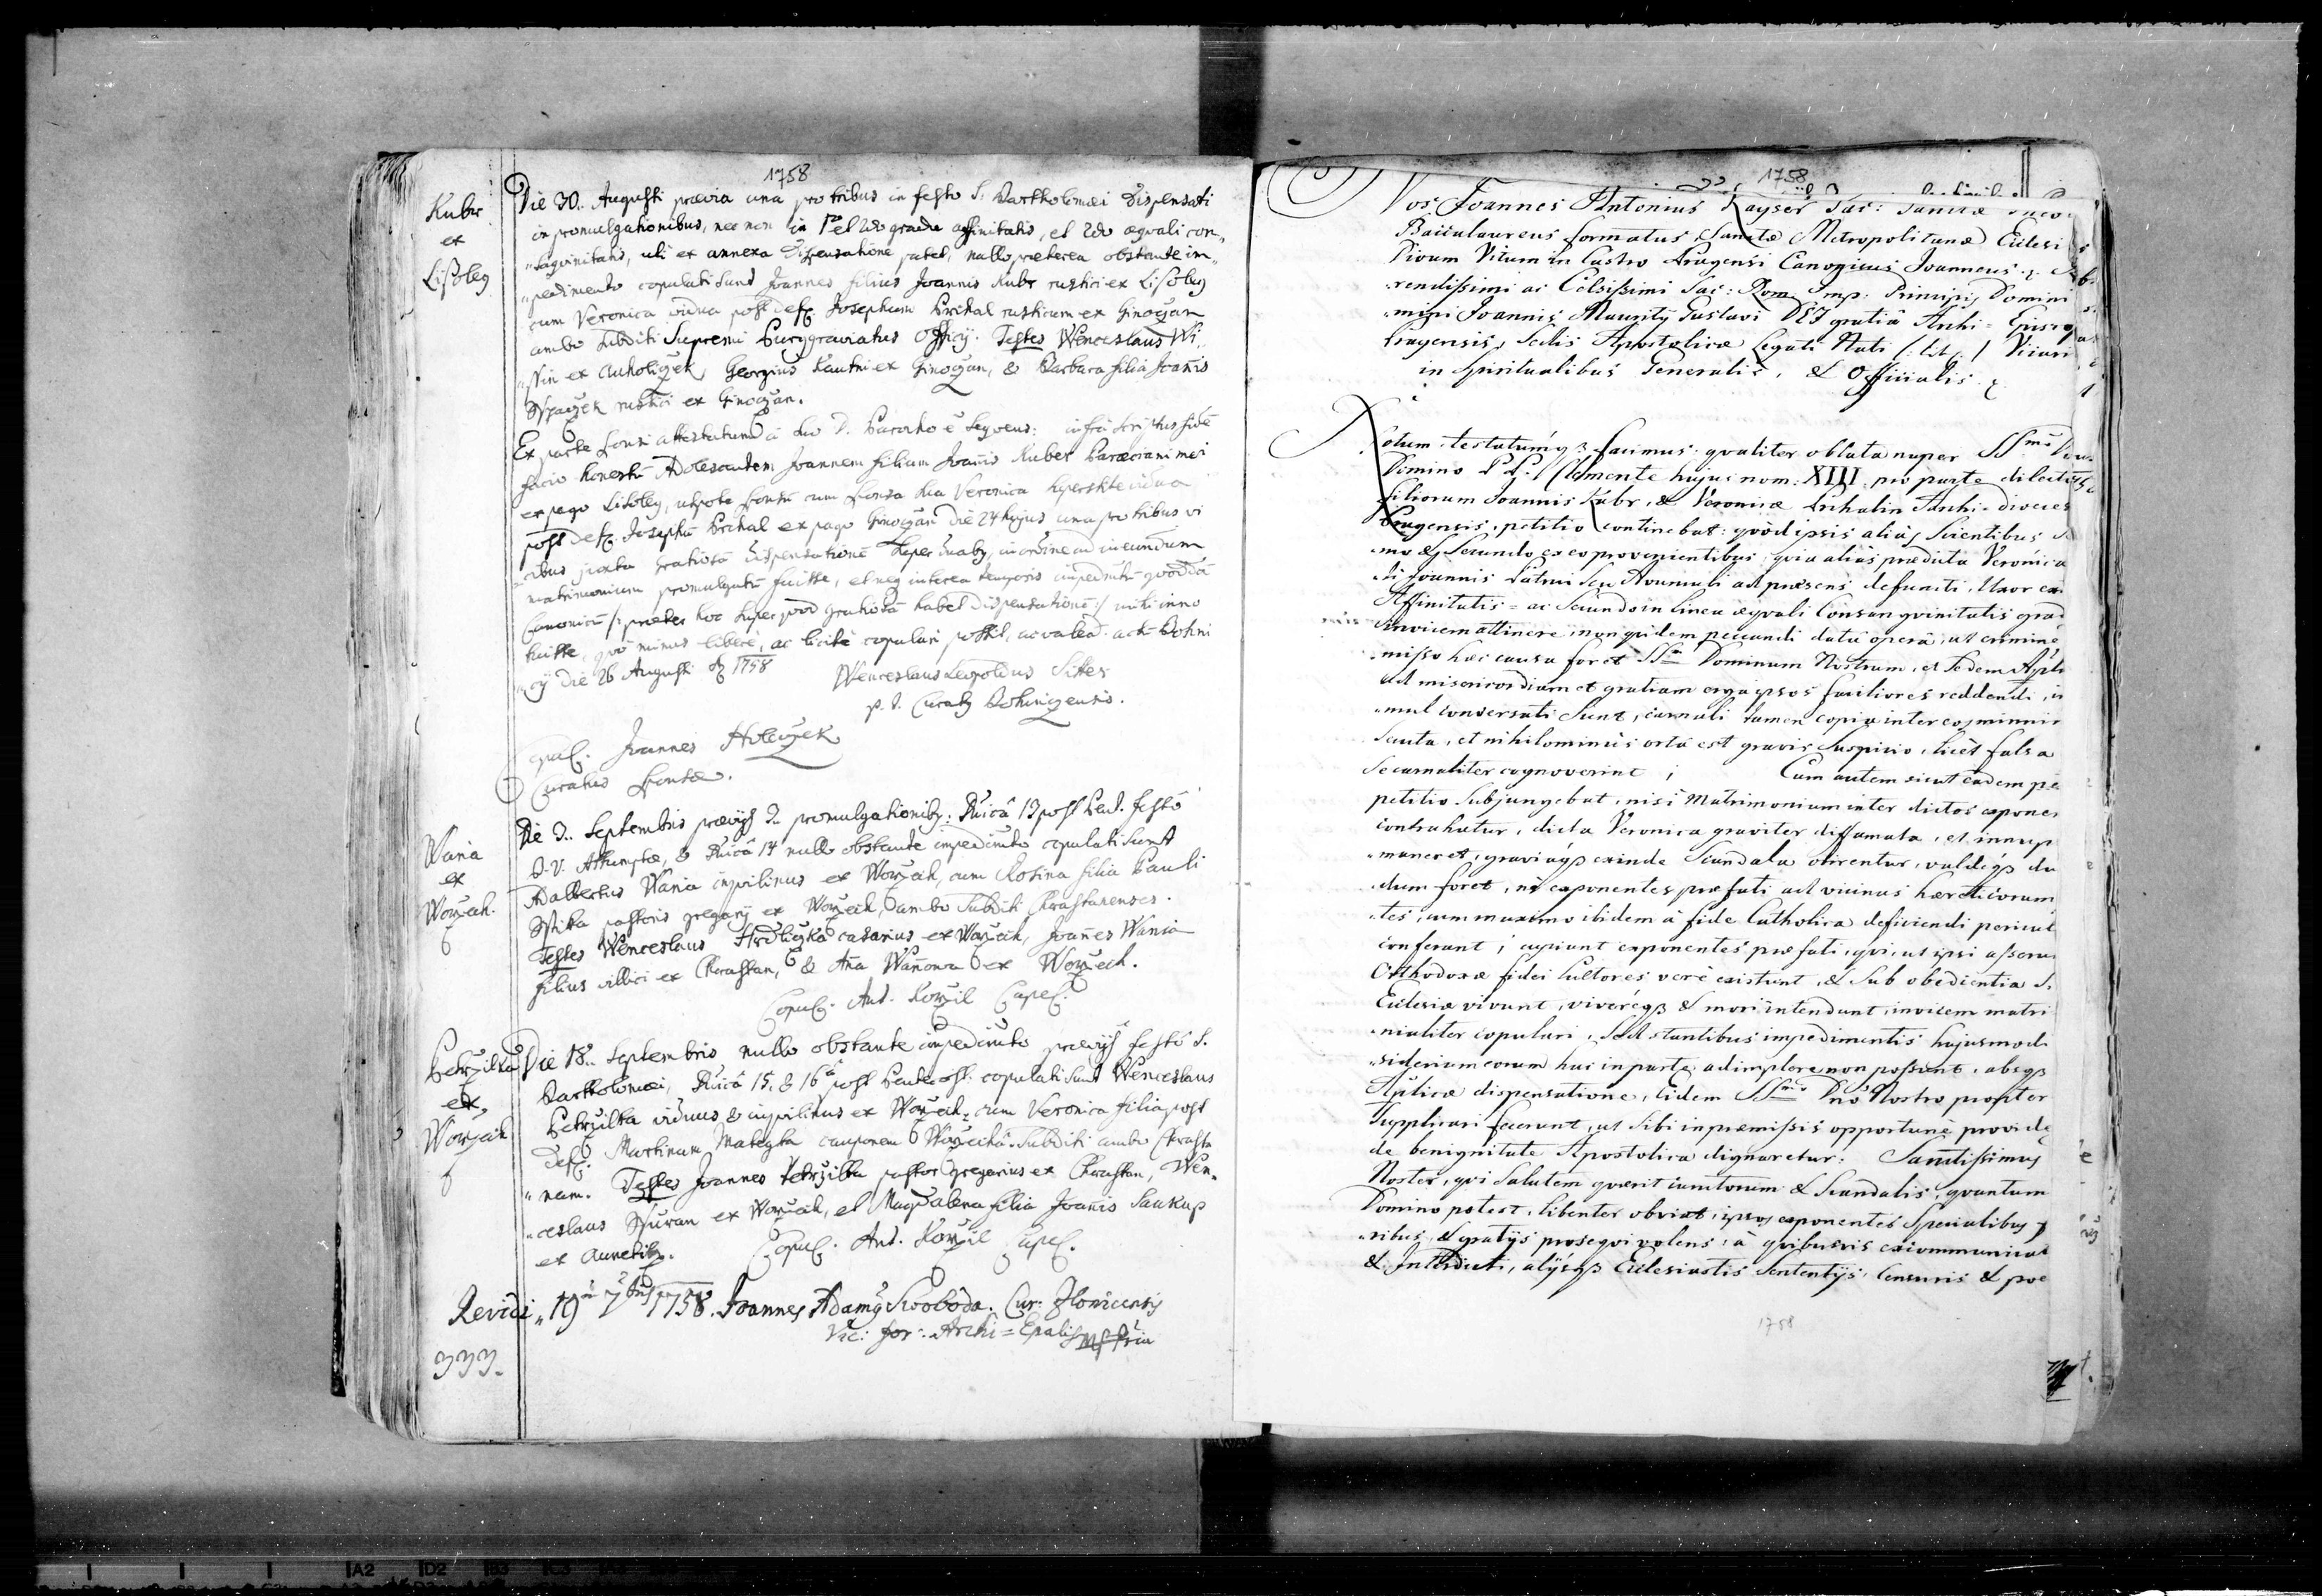 1758
Kubr
ex
Lisoleg
Die 30. Augusti prævia una pro tribus in festo S. Bartholomæi dispensati
in promulgationibus, nec non in 1mo et 2do gradu affinitatis, et 2do æquali con„
„sagvinitatis, uti ex annexa dispensatione patet, nullo præterea obstante im„
„pedimento copulati sunt Joannes filius Joannis Kubr rustici ex Lisoleg
cum Veronica vidua post def. Josephum Prchal rusticum ex Ginoczan
ambo subditi Supremi Burggraviatus Officij. Testes Wenceslaus Wi„
„ ex Aucholiczek, Georgius Kautni ex Ginoczan, & Barbara filia Joañis
Spaczek rustici ex Ginoczan.
Ex parte sponsi attestatum à suo D. Parocho è seqvens: infrà scriptus fidē
facio honestū Adolescentem Joannem filium Joañis Kuber Parœciani mei
ex pago Lisoleg, utpote sponsū cum sponsa sua Veronica superstite vidua
post def. Josephū Prchal ex pago Ginoczan die 24 hujus una pro tribus vi
„cibus juxta gratiosā dispensationē super in ordine ad ineundum
matrimonium promulgatū fuisse, et neq interea temporis impedimtū qvoddā
Canonicū /: præter hoc super qvod gratiosā habet dispensationē :/ mihi inno
tuisse, qvò minus liberè, ac licitè copulari possit, ac valeat. actū Dohni
„cÿ die 26 Augusti A 1758
Wenceslaus Leopoldus Sitter
p. t. Curatq Dohniczensis.
Copul. Joannes Holeczek
Curatus Sponsæ.
Wania
ex
Worzech.
Die 3. Septembris prævijs 3. promulgationibq: Dnicâ 13 post Pent. festo
B. V. Assumptæ, & Dnicâ 14 nullo obstante impedimto copulati sunt
Adalbertus Wania inqvilinus ex Worzech, cum Rosina filia Pauli
Ssitka pastoris gregarij ex Worzech, ambo subditi Chrastanenses.
Testes Wenceslaus Hrdliczka casarius ex Worzech, Joañes Wania
filius villici ex Chrasstan, & Aña Wañowa ex Worzech.
Copul. Ant. Korzil Capel.
Petrzilka
ex
Worzech
Die 18. Septembris nullo obstante impedimto prævijs festo S.
Bartholomæi, Dnicâ 15. & 16â post Pentecost. copulati sunt Wenceslaus
Petrzilka viduus & inqvilinus ex Worzech, cum Veronica filia post
def. Martinum Mategka cauponem Worzechū. subditi ambo Chrasta
„nam. Testes Joannes Petrzilka pastor gregarius ex Chrasstan, Wen„
„ceslaus Ssuran ex Worzech, et Magdalena filia Joañis Saukup
ex Auretitz.
Copul. Ant. Korzil Capel.
Revidi „ 19â 7bris 1758. Joannes Adamq Swoboda. Cur: Zloniceensis
Vic: for: Archi=Epalis mppria
333.
1758
Nos Joannes Antonius Kayser Sac: Sanctæ
Baccalaureus formatus, Sanctæ Metropolitanæ Ecclesi
Divum Vitum in Castro Pragensi Canonicus Joanneus.
rendissimi ac Celsissimi Sac: Rom: Imp: Principis Domini
„mini Joannis Mauritij Gustavi DEI gratiâ Archi=Episcop
Pragensis, Sedis Apostolicæ Legati Nati (: tit :) Vicari
in Spiritualibus Generalis, & Officialis.
Notum, testatumqз facimus: qvaliter oblata nuper SSmo
Domino P.P. Clemente hujus nom: XIII. pro parte dilecto
filiorum Joannis Kubr, & Veronicæ Prchalin Archi-dioeces
Pragensis, petitio continebat: qvòd ipsis aliàs scientibus se
mo & Secundo ex eo provenientibus, qvia aliàs prædicta Veronica
di Joannis Patrui seu Avunculi ad præsens defuncti, Uxor ex
Affinitatis = ac Secundo in linea æqvali Consangvinitatis grad
invicem attinere, non qvidem peccandi datâ operâ, ut crimine
misso hæc causa foret SSm Dominum Nostrum, et Sedem Aplī
ad misericordiam et gratiam erga ipsos faciliores reddendi, si
„mul conversati sunt, carnali tamen copia inter eos minime
secuta, et nihilominùs orta est gravis suspicio, licèt falsa
se carnaliter cognoverint; Cum autem sicut eadem pe
petitio subjungebat, nisi Matrimonium inter dictos expone
contrahatur, dicta Veronica graviter diffamata, et innup
„maneret, graviaqз exinde Scandala orirentur, valdeqз du
dum foret, ne exponentes præfati ad vicinas hæreticorum
„tes, cum maximo ibidem à fide Catholica deficiendi pericul
conferant; cupiunt exponentes præfati, qvi, ut ipsi asserun
Orthodoxæ fidei Cultores verè existunt, & sub obedientia S.
Ecclesiæ vivunt, vivereqз & mori intendunt, invicem matri
„nialiter copulari, sed stantibus impedimentis hujusmodi
„siderium eorum hac in parte adimplere non possunt, absqз
Aplicæ dispensatione, eidem SSmo Dno Nostro propter
supplicari fecerunt, ut sibi in præmissis opportunè provide
de benignitate Apostolica dignaretur: Sanctissimus
Noster, qvi salutem qværit cunctorum & Scandalis, qvantum
Domino potest, libenter obviat, ipsos exponentes specialibus
„ribus, & gratijs proseqvi volens, à qvibusvis excommunicat
& Interdicti, alijsqз Ecclesiasticis Sententijs, Censuris & poe
1758